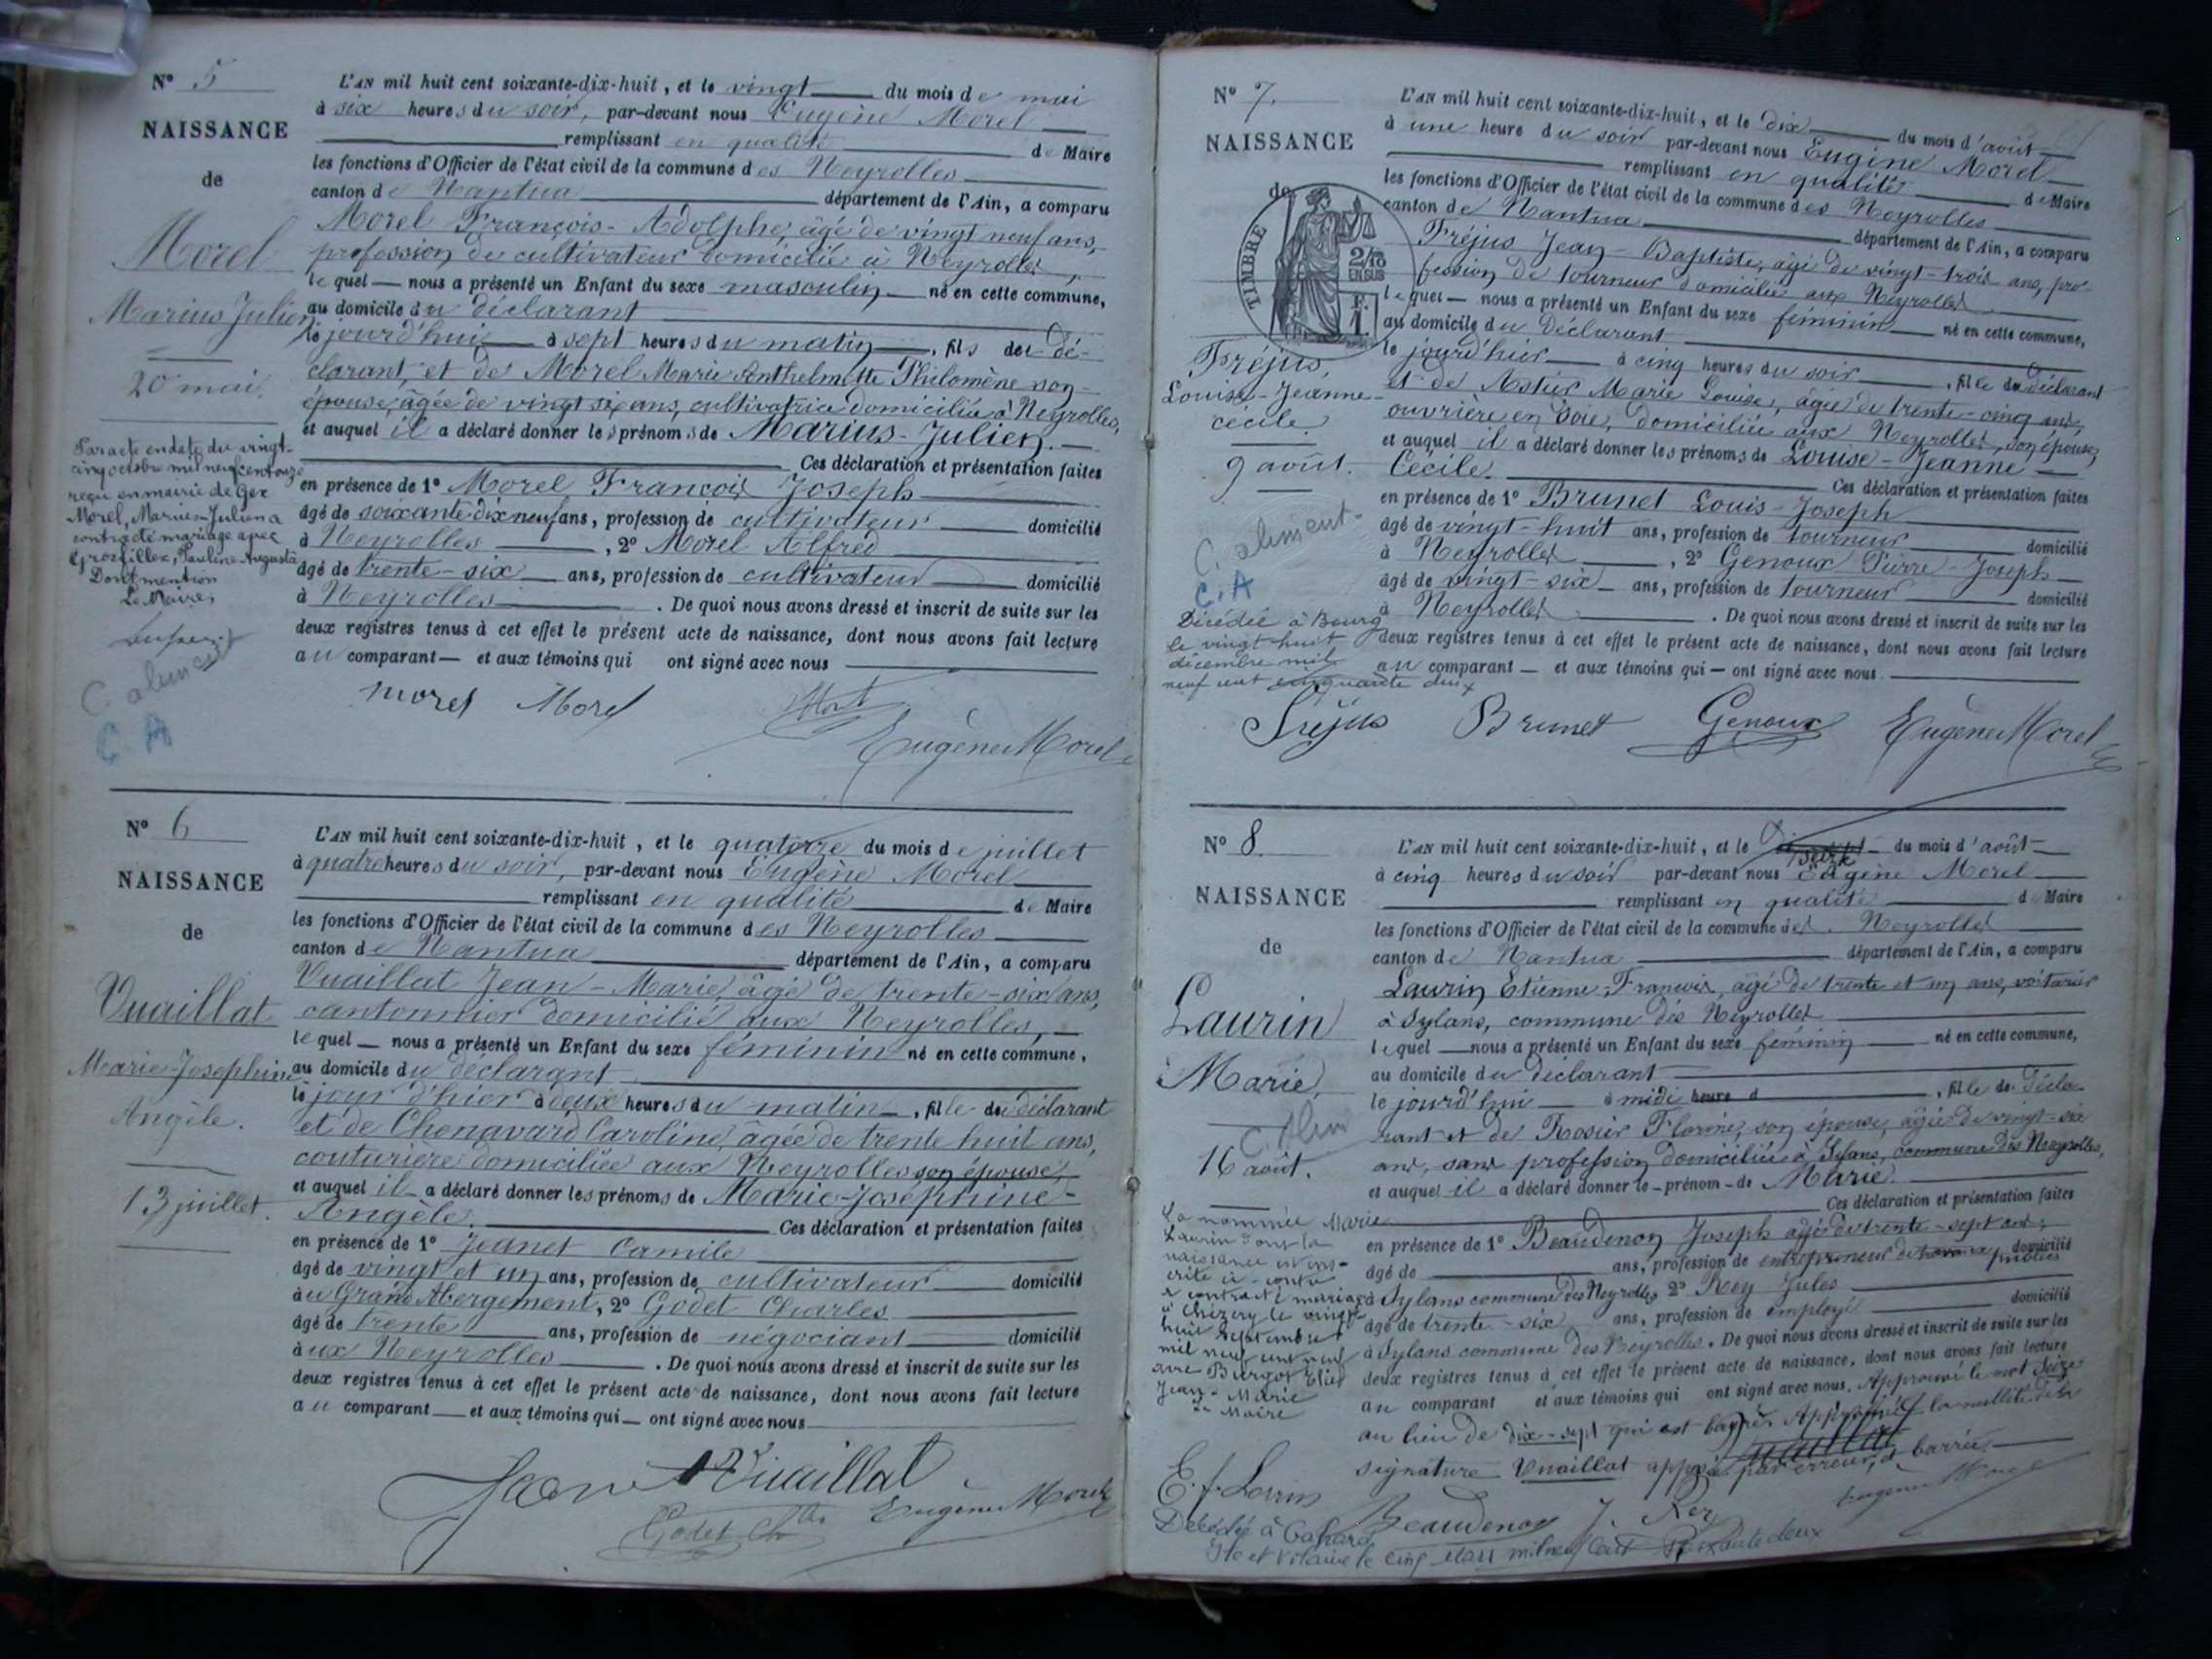 N° 5
NAISSANCE
de
Morel
Marius Julien
20 mai.
Par acte en date du vingt-
cinq octobre mil neuf cent onze
reçu en mairie de Gex
Morel, Marius-Julien a
contracté mariage avec
Grosfillex, Pauline-Augusta
Dont mention
Le Maire,
C. aliment
C. A
L'AN mil huit cent soixante-dix-huit, et le vingt du mois de mai
à six heures du soir, par-devant nous Eugène Morel
remplissant en qualité de Maire
les fonctions d'Officier de l'état civil de la commune des Neyrolles
canton de Nantua département de l'Ain, a comparu
Morel François-Adolphe, âgé de vingt neuf ans,
profession de cultivateur domicilié à Neyrolles,
lequel nous a présenté un Enfant du sexe masculin né en cette commune,
au domicile du déclarant
le jourd'hui à sept heures du matin, fils du dé-
clarant, et de Morel Marie Anthelmette Philomène son
épouse, âgée de vingt six ans, cultivatrice domiciliée à Neyrolles,
et auquel il a déclaré donner les prénoms de Marius-Julien.
Ces déclaration et présentation faites
en présence de 1° Morel François Joseph
âgé de soixante dix neuf ans, profession de cultivateur domicilié
à Neyrolles, 2° Morel Alfred
âgé de trente-six ans, profession de cultivateur domicilié
à Neyrolles. De quoi nous avons dressé et inscrit de suite sur les
deux registres tenus à cet effet le présent acte de naissance, dont nous avons fait lecture
au comparant et aux témoins qui ont signé avec nous
morel Morel
Eugène Morel
N° 6
NAISSANCE
de
Vuaillat
Marie-Josephine
Angèle.
13 juillet.
L'AN mil huit cent soixante-dix-huit, et le quatorze du mois de juillet
à quatre heures du soir, par-devant nous Eugène Morel
remplissant en qualité de Maire
les fonctions d'Officier de l'état civil de la commune des Neyrolles
canton de Nantua département de l'Ain, a comparu
Vuaillat Jean-Marie, âgé de trente-six ans,
cantonnier domicilié aux Neyrolles,
lequel nous a présenté un Enfant du sexe féminin né en cette commune,
au domicile du déclarant
le jour d'hier à deux heures du matin, fille du déclarant
et de Chenavard Caroline, âgée de trente huit ans,
couturière domiciliée aux Neyrolles son épouse,
et auquel il a déclaré donner les prénoms de Marie-Joséphine-
Angèle. Ces déclaration et présentation faites
en présence de 1° Jeanet Camile
âgé de vingt et un ans, profession de cultivateur domicilié
au Grand Abergement, 2° Godet Charles
âgé de trente ans, profession de négociant domicilié
aux Neyrolles. De quoi nous avons dressé et inscrit de suite sur les
deux registres tenus à cet effet le présent acte de naissance, dont nous avons fait lecture
au comparant et aux témoins qui ont signé avec nous
Vuaillat
Godet Ch Eugène Morel
N° 7.
NAISSANCE
de
TIMBRE
2/10
EN SUS
F.
1.
Fréjus,
Louise-Jeanne-
cécile.
9 août.
C. aliment.
C. A
Décédée à Bourg
le vingt huit
décembre mil
neuf cent cinquante deux
L'AN mil huit cent soixante-dix-huit, et le dix du mois d'août
à une heure du soir par-devant nous Eugène Morel
remplissant en qualité de Maire
les fonctions d'Officier de l'état civil de la commune des Neyrolles
canton de Nantua département de l'Ain, a comparu
Fréjus Jean-Baptiste, âgé de vingt-trois ans, pro-
fession de tourneur domicilié aux Neyrolles
lequel nous a présenté un Enfant du sexe féminin né en cette commune,
au domicile du Déclarant
le jourd'hier à cinq heures du soir, fille du déclarant
et de Astier Marie Louise, âgée de trente-cinq ans,
ouvrière en Soie, domiciliée aux Neyrolles, son épouse,
et auquel il a déclaré donner les prénoms de Louise-Jeanne
Cécile. Ces déclaration et présentation faites
en présence de 1° Brunet Louis-Joseph
âgé de vingt-huit ans, profession de tourneur domicilié
à Neyrolles, 2° Genoux Pierre-Joseph
âgé de vingt-six ans, profession de tourneur domicilié
à Neyrolles. De quoi nous avons dressé et inscrit de suite sur les
deux registres tenus à cet effet le présent acte de naissance, dont nous avons fait lecture
au comparant et aux témoins qui ont signé avec nous.
Fréjus Brunet Genoux Eugène Morel
N° 8.
NAISSANCE
de
Laurin
Marie,
16 août.
La nommée Marie
Laurin dont la
naissance est ins-
crite ci-contre
a contracté mariage
à Chézery le vingt-
huit septembre
mil neuf cent neuf
avec
Jean-Marie
Le Maire
L'AN mil huit cent soixante-dix-huit, et le seize du mois d'août
à cinq heures du soir par-devant nous Eugène Morel
remplissant en qualité de Maire
les fonctions d'Officier de l'état civil de la commune des Neyrolles
canton de Nantua département de l'Ain, a comparu
Laurin Etienne-François, âgé de trente et un ans, voiturier
à Sylans, commune des Neyrolles
lequel nous a présenté un Enfant du sexe féminin né en cette commune,
au domicile du déclarant
le jourd'hui à midi heure d, fille du Décla-
rant et de Rosier Florine, son épouse, âgée de vingt-six
ans, sans profession domiciliée à Sylans, commune des Neyrolles,
et auquel il a déclaré donner le prénom de Marie.
Ces déclaration et présentation faites
en présence de 1° Beaudenon Joseph âgé de trente-sept ans,
âgé de ans, profession de entrepreneur de travaux publics domicilié
à Sylans commune des Neyrolles 2° Rey Jules
âgé de trente-six ans, profession de employé domicilié
à Sylans commune des Neyrolles. De quoi nous avons dressé et inscrit de suite sur les
deux registres tenus à cet effet le présent acte de naissance, dont nous avons fait lecture
au comparant et aux témoins qui ont signé avec nous. Approuvé le mot seize
au lieu de dix-sept qui est barré. Approuvé la nullité de la
signature Vuaillat apposée par erreur, & barrée.
Vuaillat
Beaudenon J. Rey Eugène Morel
Décédée à
Ile et Vilaine le cinq mil neuf cent soixante deux